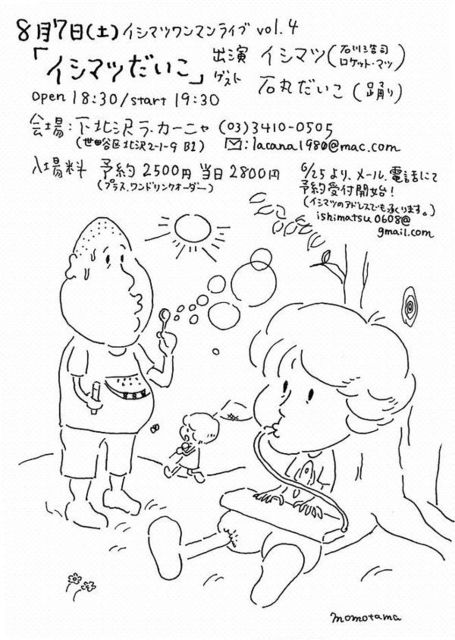 8月7日(土)イシマツワンマンライブ vol.4
「イシマツだいこ」
出演 イシマツ(石川浩司 ロケット・マツ)
ゲスト 石丸だいこ(踊り)
open 18:30/start 19:30
会場:下北沢ラ・カーニャ (03)3410-0505
(世田谷区北沢2-1-9 B1) ✉:lacana1980@mac.com
入場料 予約2500円 当日2800円
(プラス、ワンドリンクオーダー)
6/25より、メール、電話にて
予約受付開始!
(イシマツのアドレスでも承ります。)
ishimatsu0608@
gmail.com
momotama